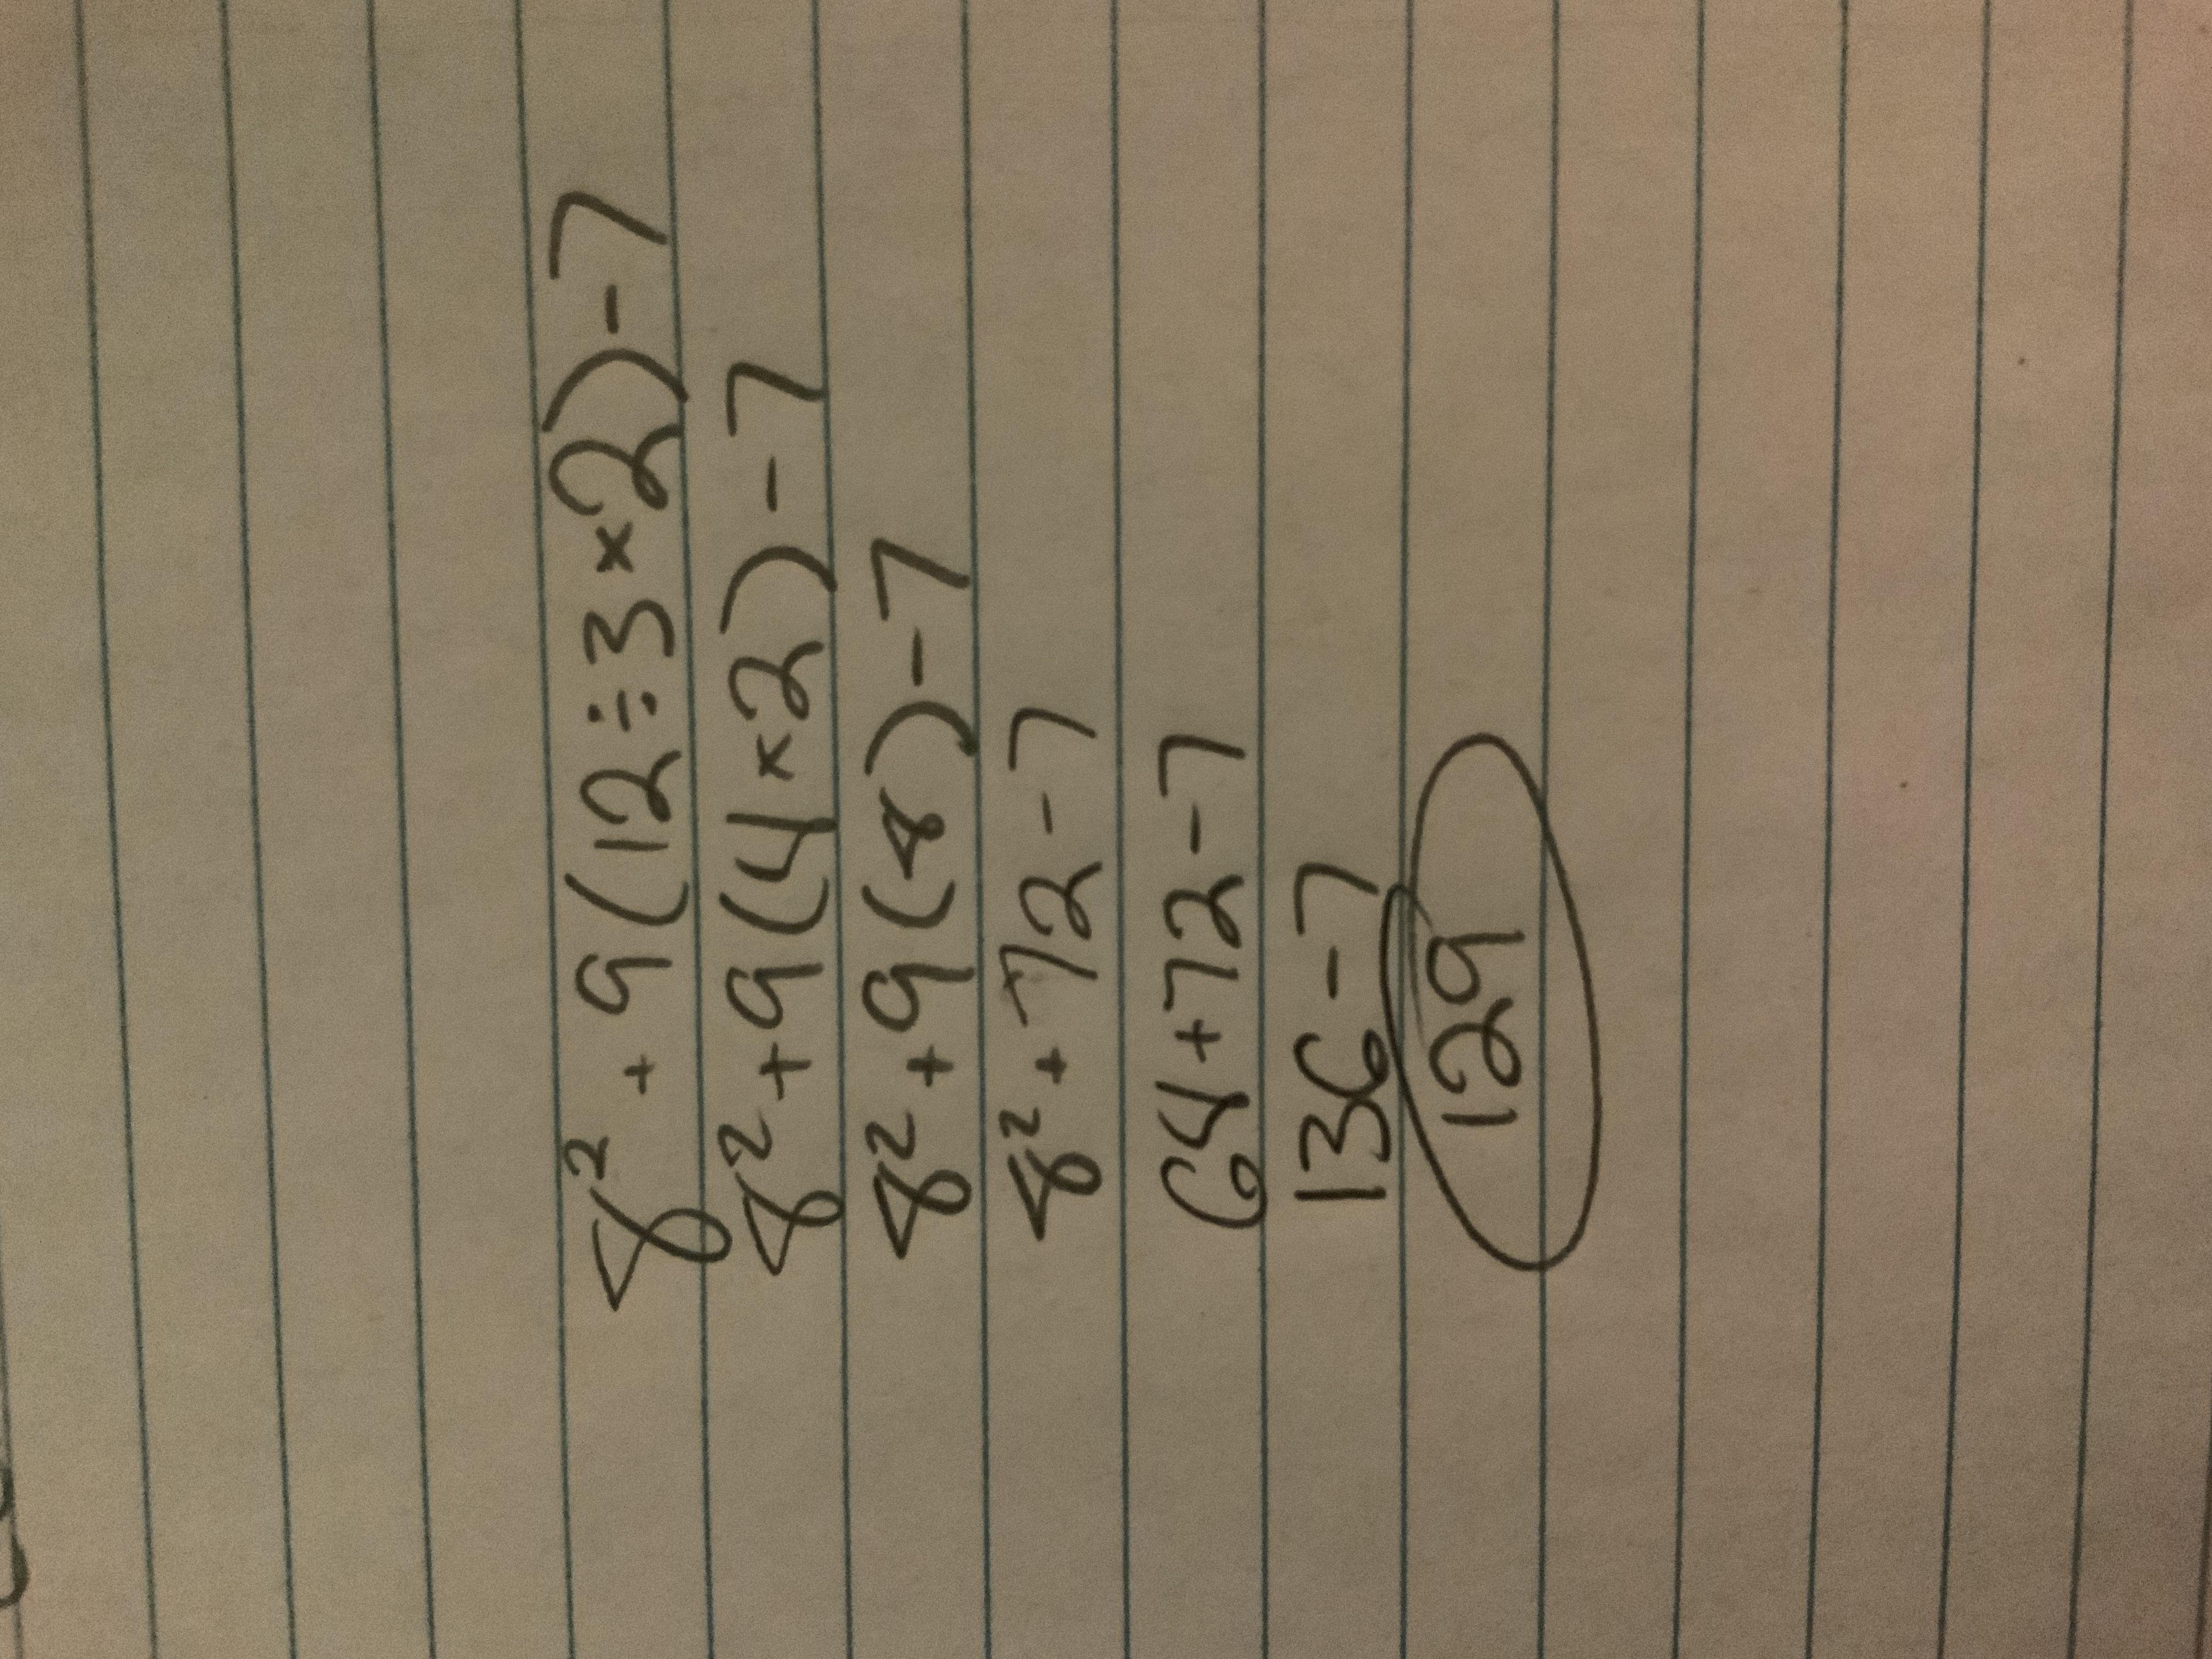 8² + 9(12÷3×2)-7
8²+9(4×2)-7
8²+9(8)-7
8²+72-7
64+72-7
136-7
129